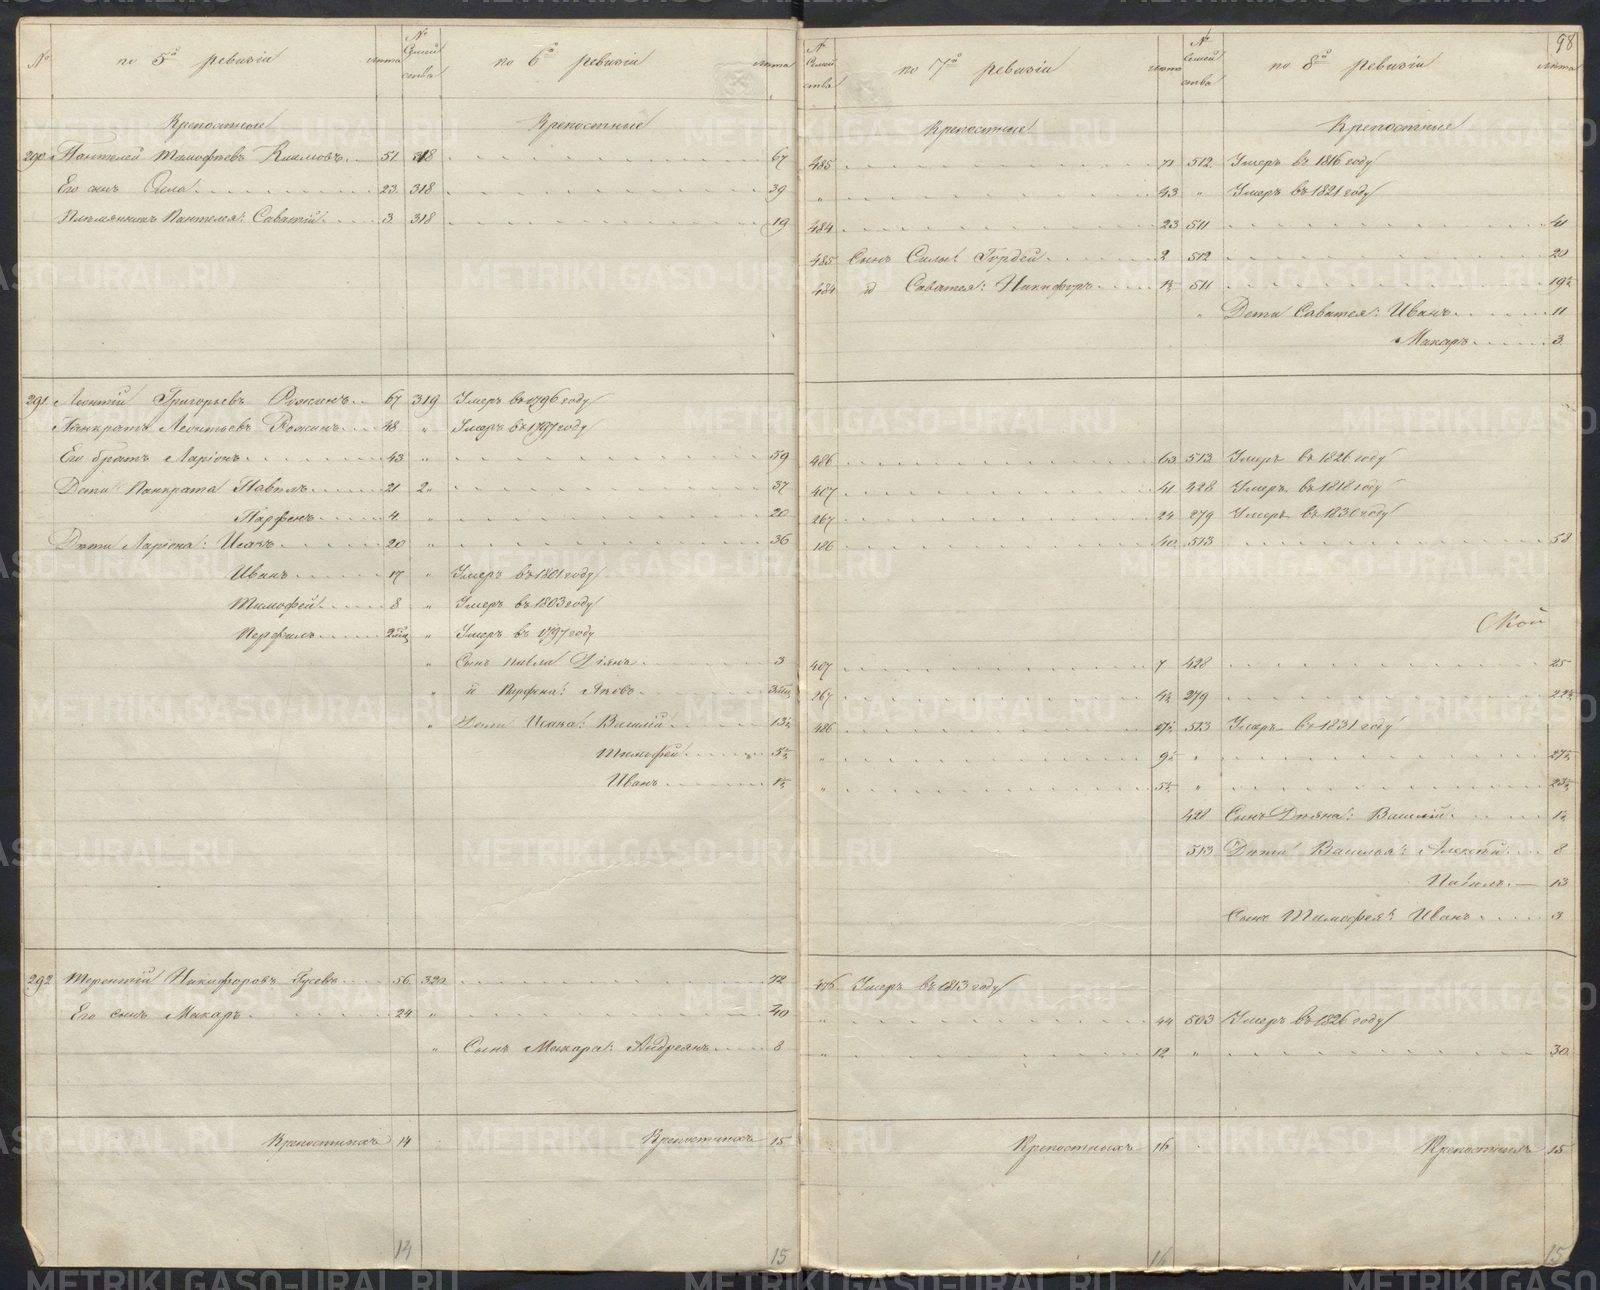 № по 5й ревизіи лѣта № Семейства по 6й ревизіи лѣта
Крепостные Крепостные
290 Пантелей Тимофѣевъ Климовъ 51 318 67
Его сынъ Сила 23 318 39
Племянникъ Пантелея: Саватій 3 318 19
291 Леонтій Григорьевъ Рожинъ 67 319 Умеръ въ 1796 году
Панкратъ Леонтьевъ Рожинъ 48 " Умеръ въ 1797 году
Его братъ Ларіонъ 43 " 59
Дети Панкрата Павелъ 21 2" 37
Парфенъ 4 " 20
Дѣти Ларіона: Исакъ 20 " 36
Иванъ 17 " Умеръ въ 1801 году
Тимофей 8 " Умеръ въ 1803 году
Перфилъ 2 " Умеръ въ 1797 году
" Сынъ Павла Діянъ 3
" й Парфена: Яковъ
" Дети Исака: Василій 13½
Тимофей 5½
Иванъ 1½
292 Терентій Никифоровъ Гусевъ 56 320 72
Его сынъ Макаръ 24 " 40
" Сынъ Макара: Андреянъ 8
Крепостныхъ 14 Крепостныхъ 15
14 15
98
№ Семейства по 7й ревизіи лѣта № Семейства по 8й ревизіи лѣта
Крепостные Крепостные
485 71 512 Умеръ въ 1816 году
" 43 " Умеръ въ 1821 году
484 23 511 41
485 Сынъ Силы: Гордей 2 512 20
484 й Саватея: Никифоръ 1½ 511 19½
" Дети Саватея: Иванъ 11
Макаръ 3
486 63 513 Умеръ въ 1826 году
407 41 428 Умеръ въ 1818 году
267 24 279 Умеръ въ 1830 году
186 40 513 58
407 7 428 25
267 4½ 279 22½
486 17½ 513 Умеръ въ 1831 году
" 9½ " 27½
" 5½ " 23½
428 Сынъ Діяна: Василій 1½
513 Дѣти Василья: Алексѣй 8
Павелъ 13
Сынъ Тимофея: Иванъ 3
476 Умеръ въ 1813 году
" 44 503 Умеръ въ 1826 году
" 12 " 30
Крепостныхъ 16 Крепостныхъ 15
16 15
METRIKI.GASO-URAL.RU